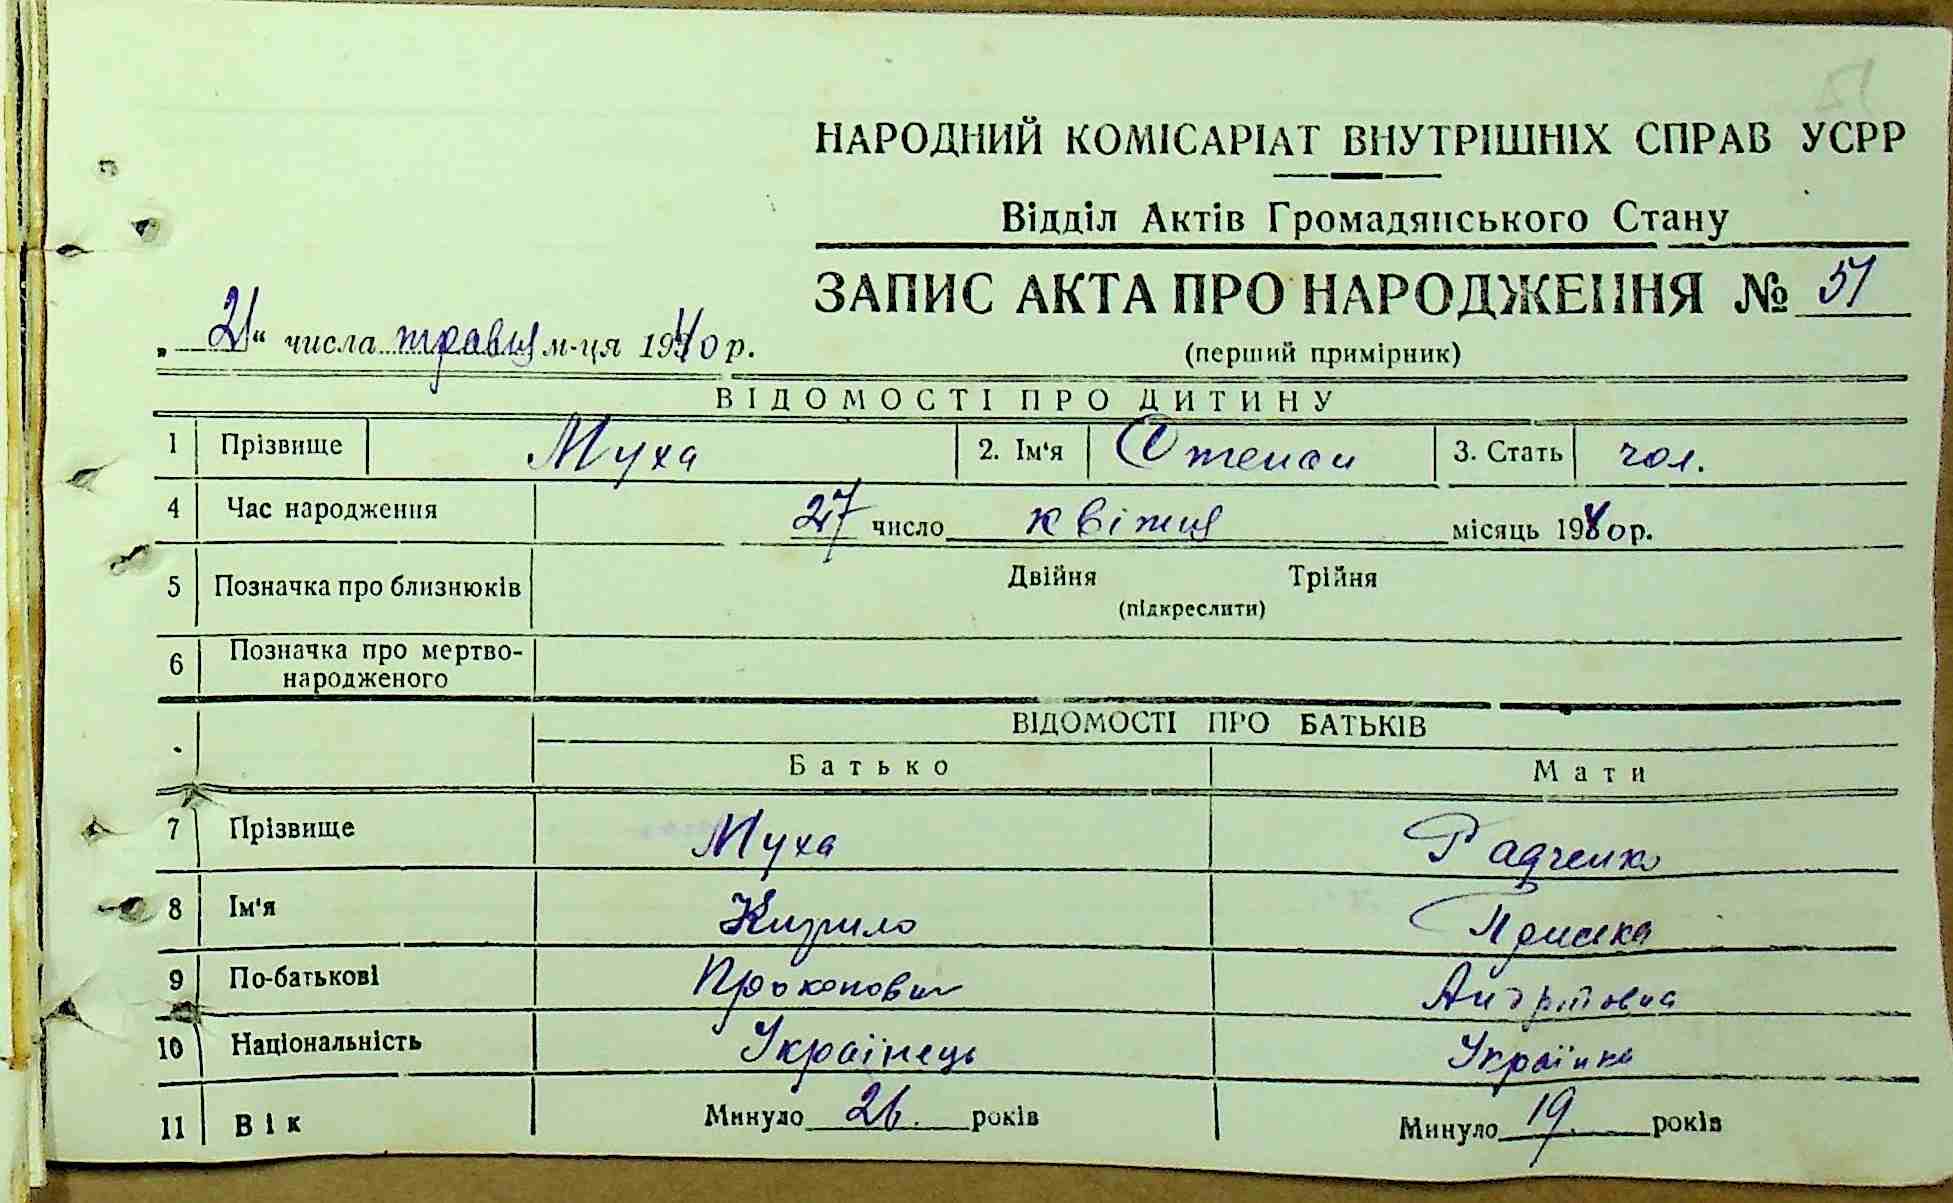 НАРОДНИЙ КОМІСАРІАТ ВНУТРІШНІХ СПРАВ УСРР
Відділ Актів Громадянського Стану
ЗАПИС АКТА ПРО НАРОДЖЕННЯ № 51
„21“ числа травня м-ця 1940 р.
(перший примірник)
ВІДОМОСТІ ПРО ДИТИНУ
1 Прізвище Муха 2. Ім'я Степан 3. Стать чол.
4 Час народження 27 число квітня місяць 1940 р.
5 Позначка про близнюків Двійня Трійня
(підкреслити)
6 Позначка про мертво-
народженого
ВІДОМОСТІ ПРО БАТЬКІВ
Батько Мати
7 Прізвище Муха Радченко
8 Ім'я Кирило Приська
9 По-батькові Прокопович
10 Національність Українець Українка
11 Вік Минуло 26. років Минуло 19. років